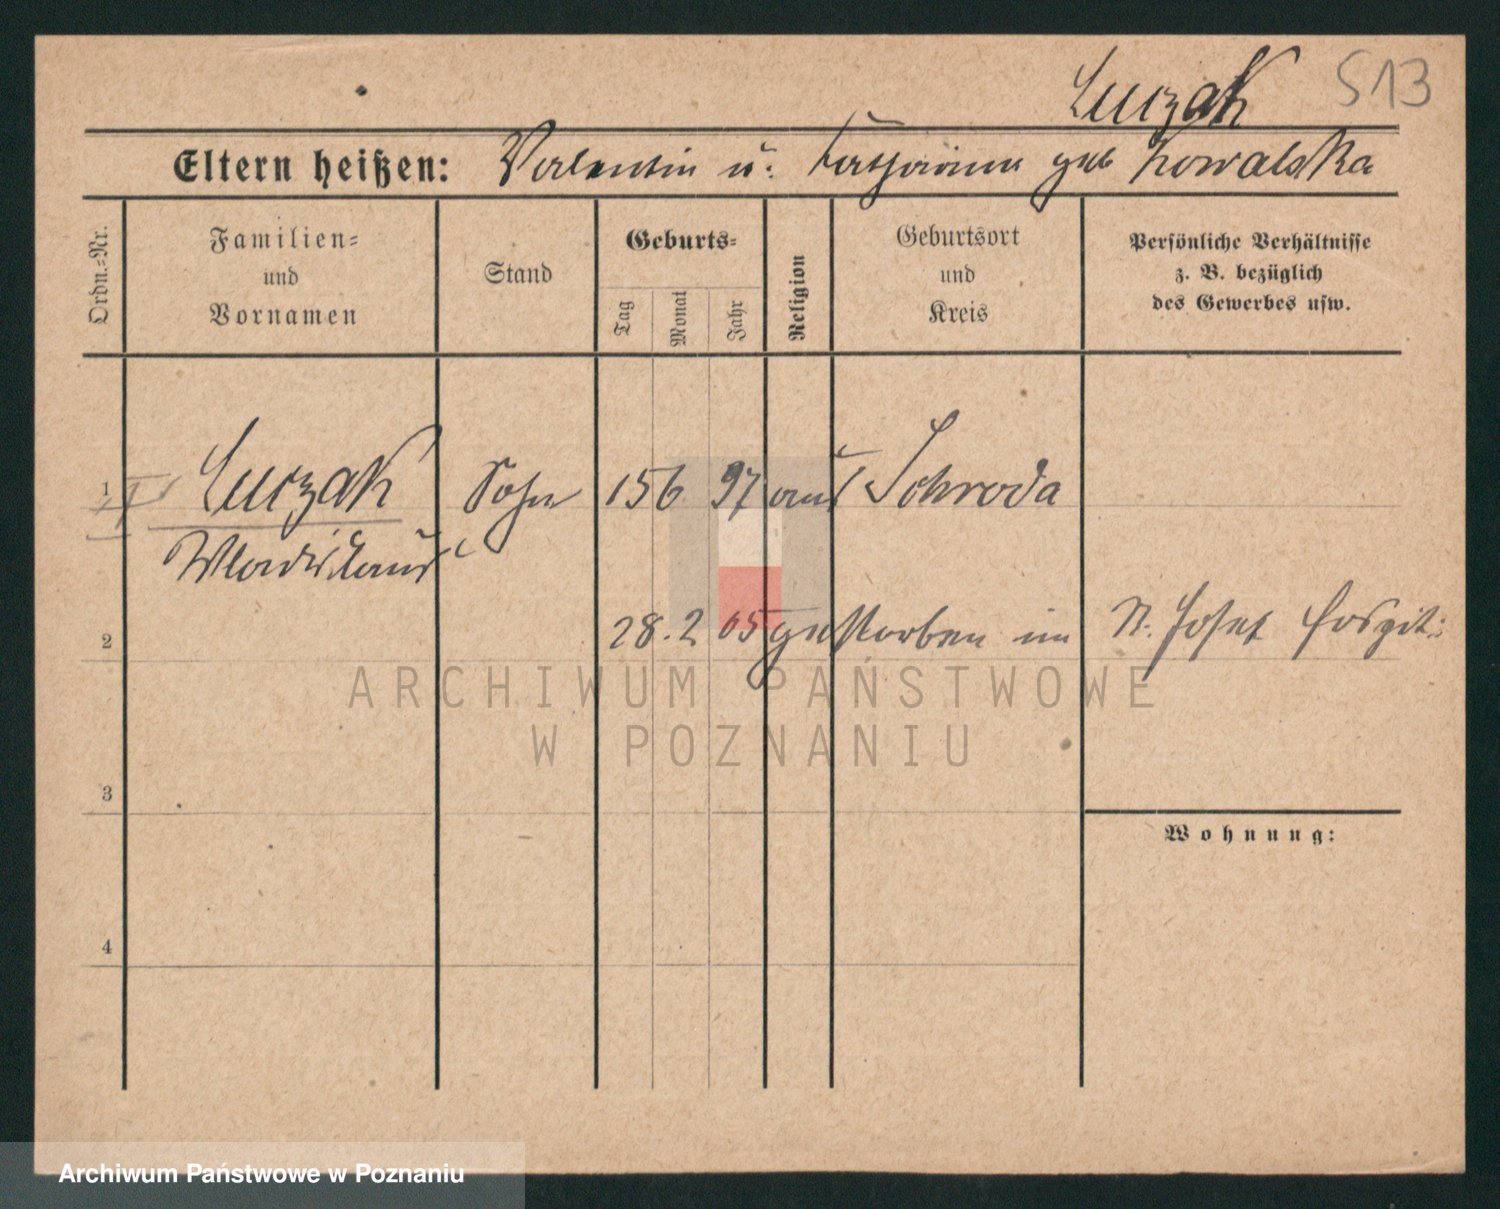 Luczak 513
Eltern heißen: Valentin u. Katharina geb Kowalska
Ordn.-Nr.
Familien-
und
Vornamen
Stand
Geburts-
Tag
Monat
Jahr
Religion
Geburtsort
und
Kreis
Persönliche Verhältnisse
z. B. bezüglich
des Gewerbes usw.
1 Luczak Sohn 15 6 97 aus Schroda
Wladislaus
2 28. 2 05 gestorben im St. Josef Hospit:
ARCHIWUM PAŃSTWOWE
W POZNANIU
3
Wohnung:
4
Archiwum Państwowe w Poznaniu